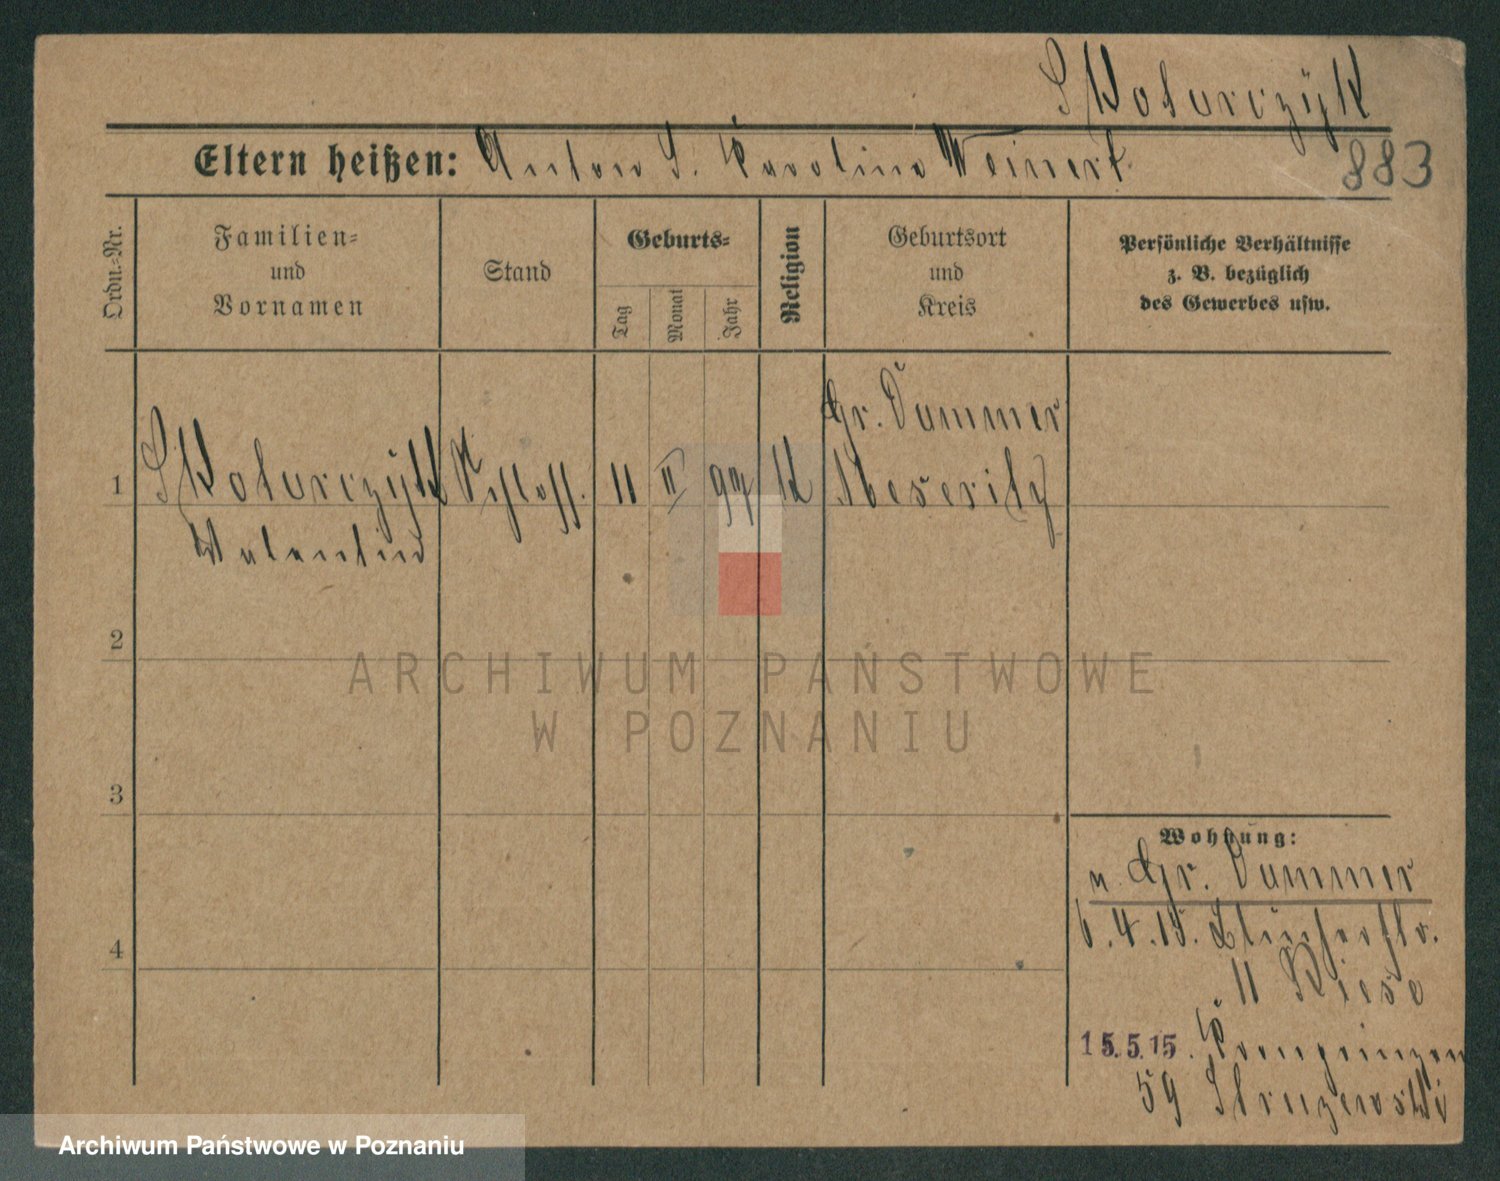 Skotarczyk
Eltern heißen: Anton S. Karolina Weinert
883
Ordn.-Nr.
Familien-
und
Vornamen
Stand
Geburts-
Tag
Monat
Jahr
Religion
Geburtsort
und
Kreis
Persönliche Verhältnisse
z. B. bezüglich
des Gewerbes usw.
1
Skotarczyk
Valentin
Schloss.
11
II
97
K
Gr. Dammer
Meseritz
2
3
4
Wohnung:
v. Gr. Dammer
6.4.15. Blücherstr.
11 Riese
15.5.15. Kronprinzen
59 Struzewski
ARCHIWUM PAŃSTWOWE
W POZNANIU
Archiwum Państwowe w Poznaniu